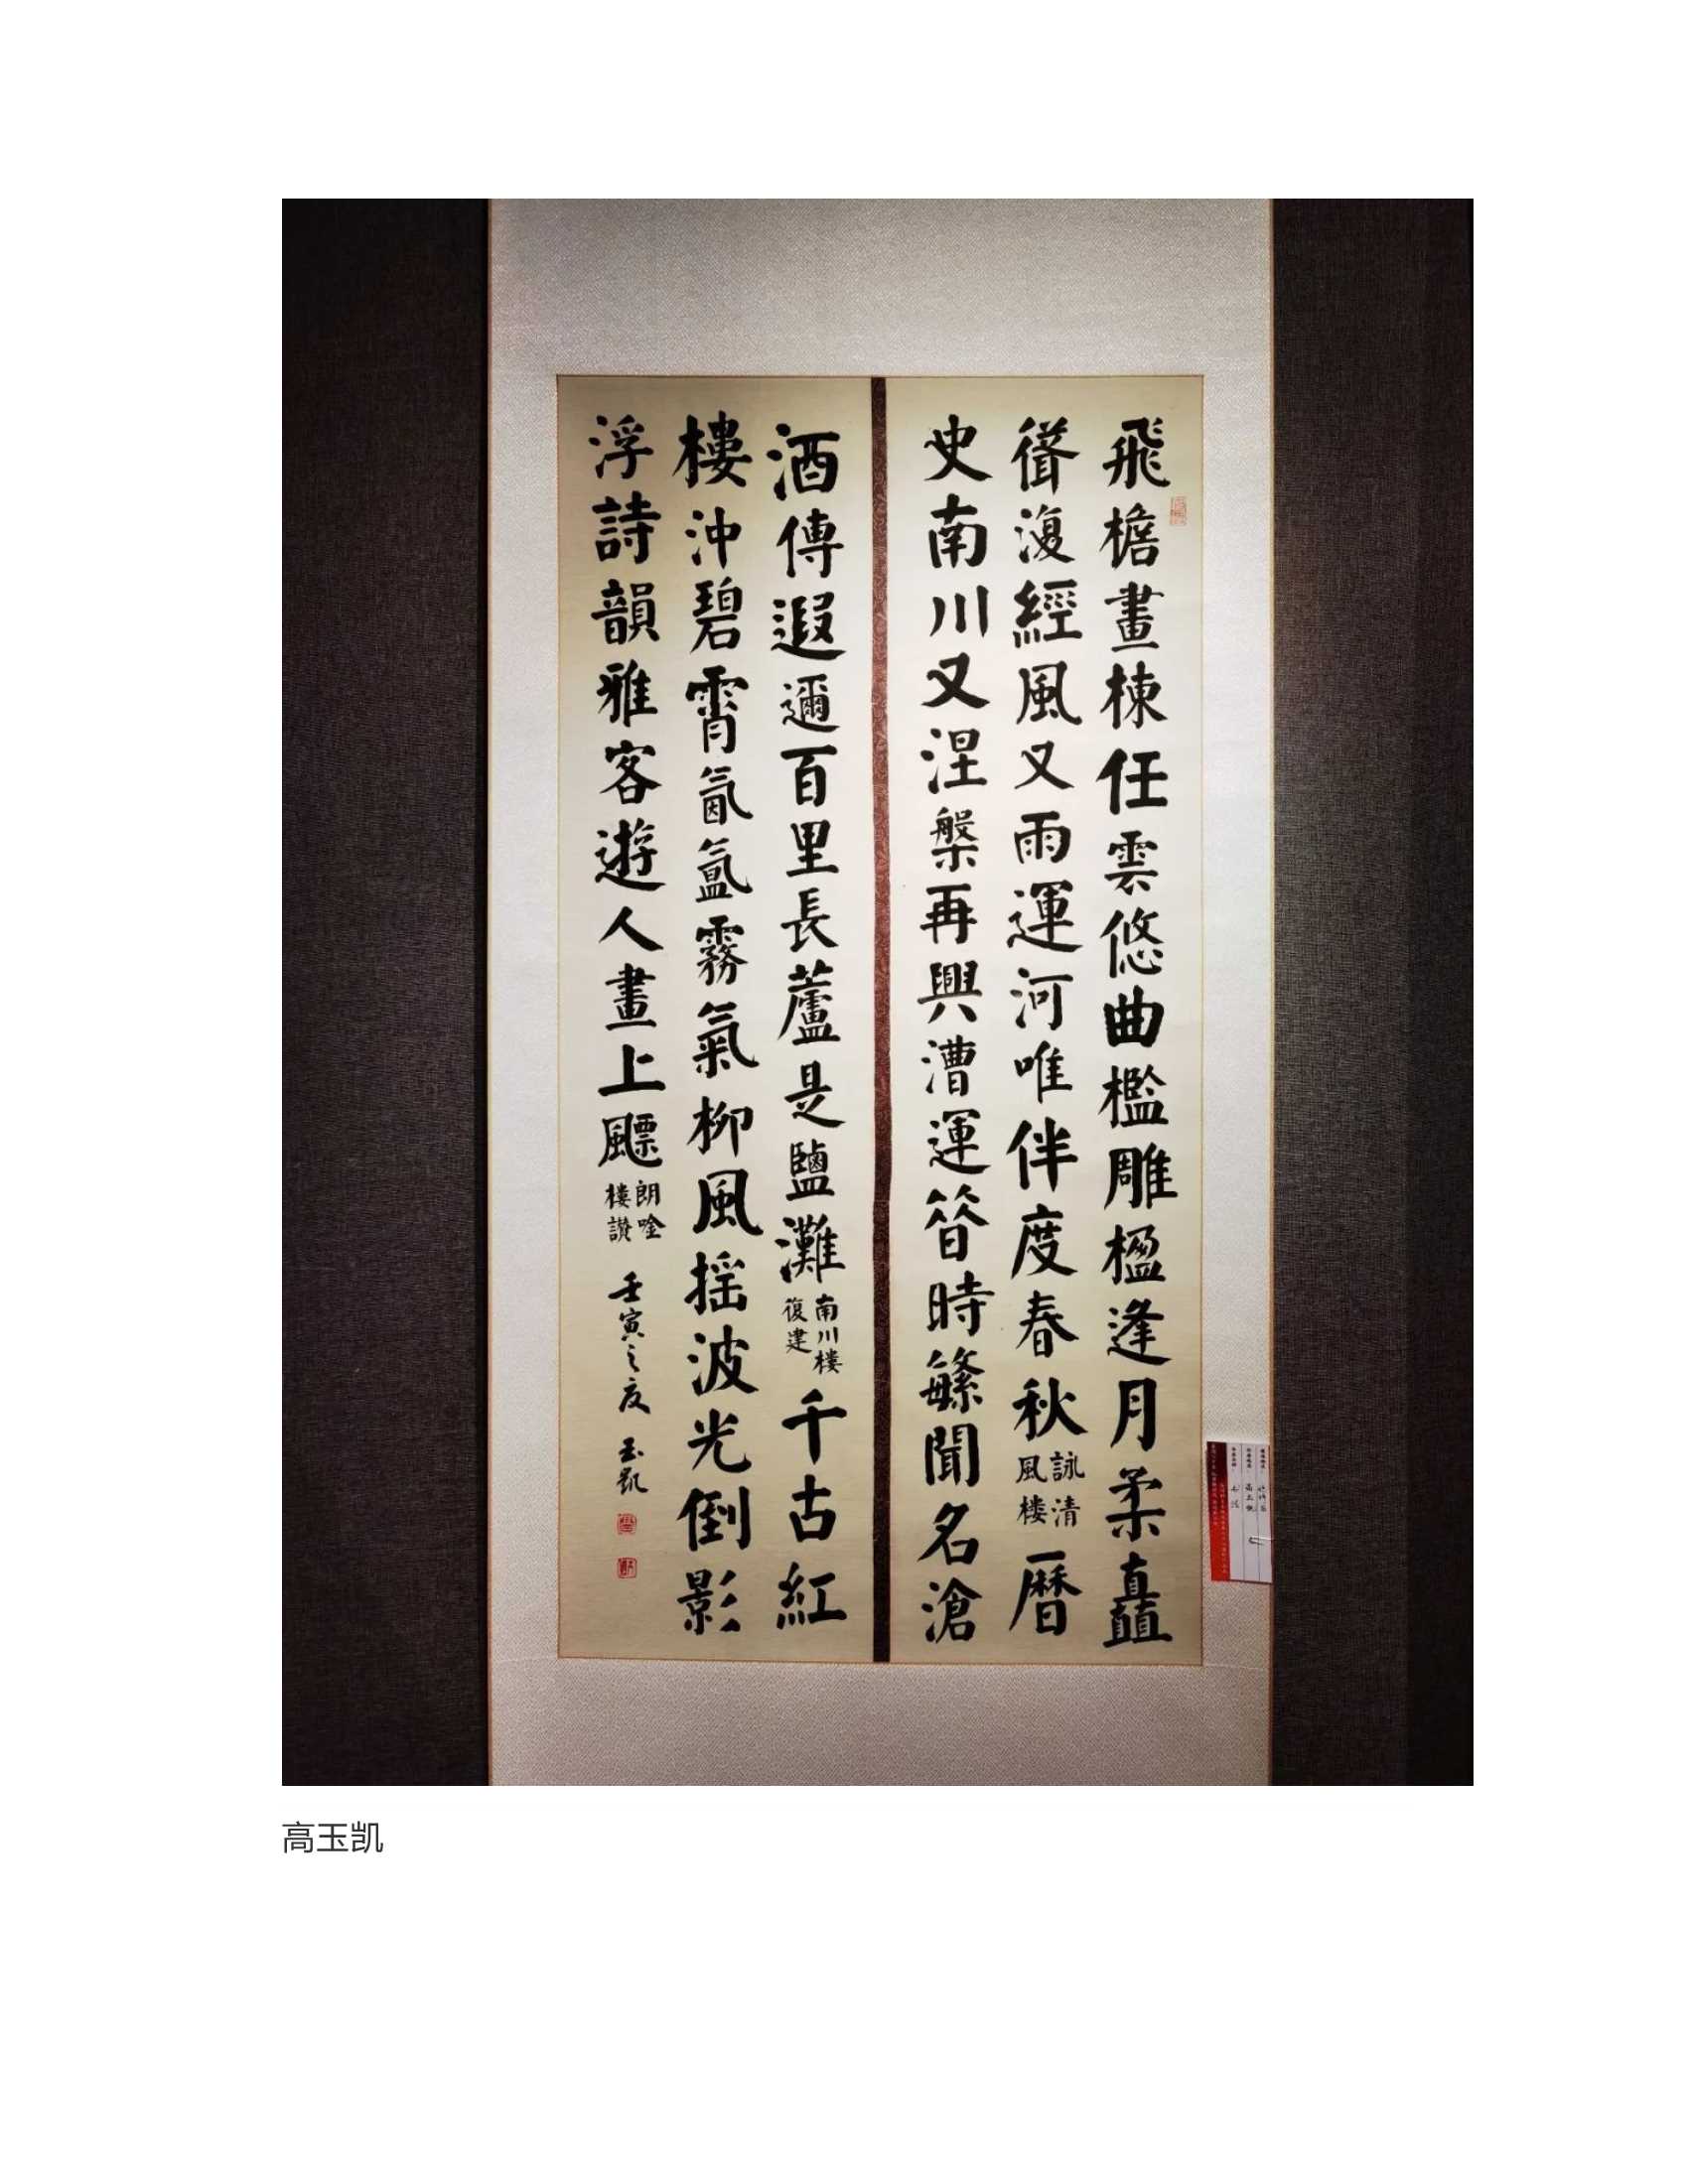 飛檐畫棟任雲悠曲檻雕楹逢月柔矗
徃復經風又雨運河唯伴度春秋詠清風楼曆
史南川又涅槃再興漕運昝時繁聞名滄
酒傳遐邇百里長蘆是鹽灘南川樓復建千古紅
樓沖碧霄氤氳霧氣柳風揺波光倒影
浮詩韻雅客遊人畫上飃朗唫樓讃壬寅之夏玉凱
高玉凯